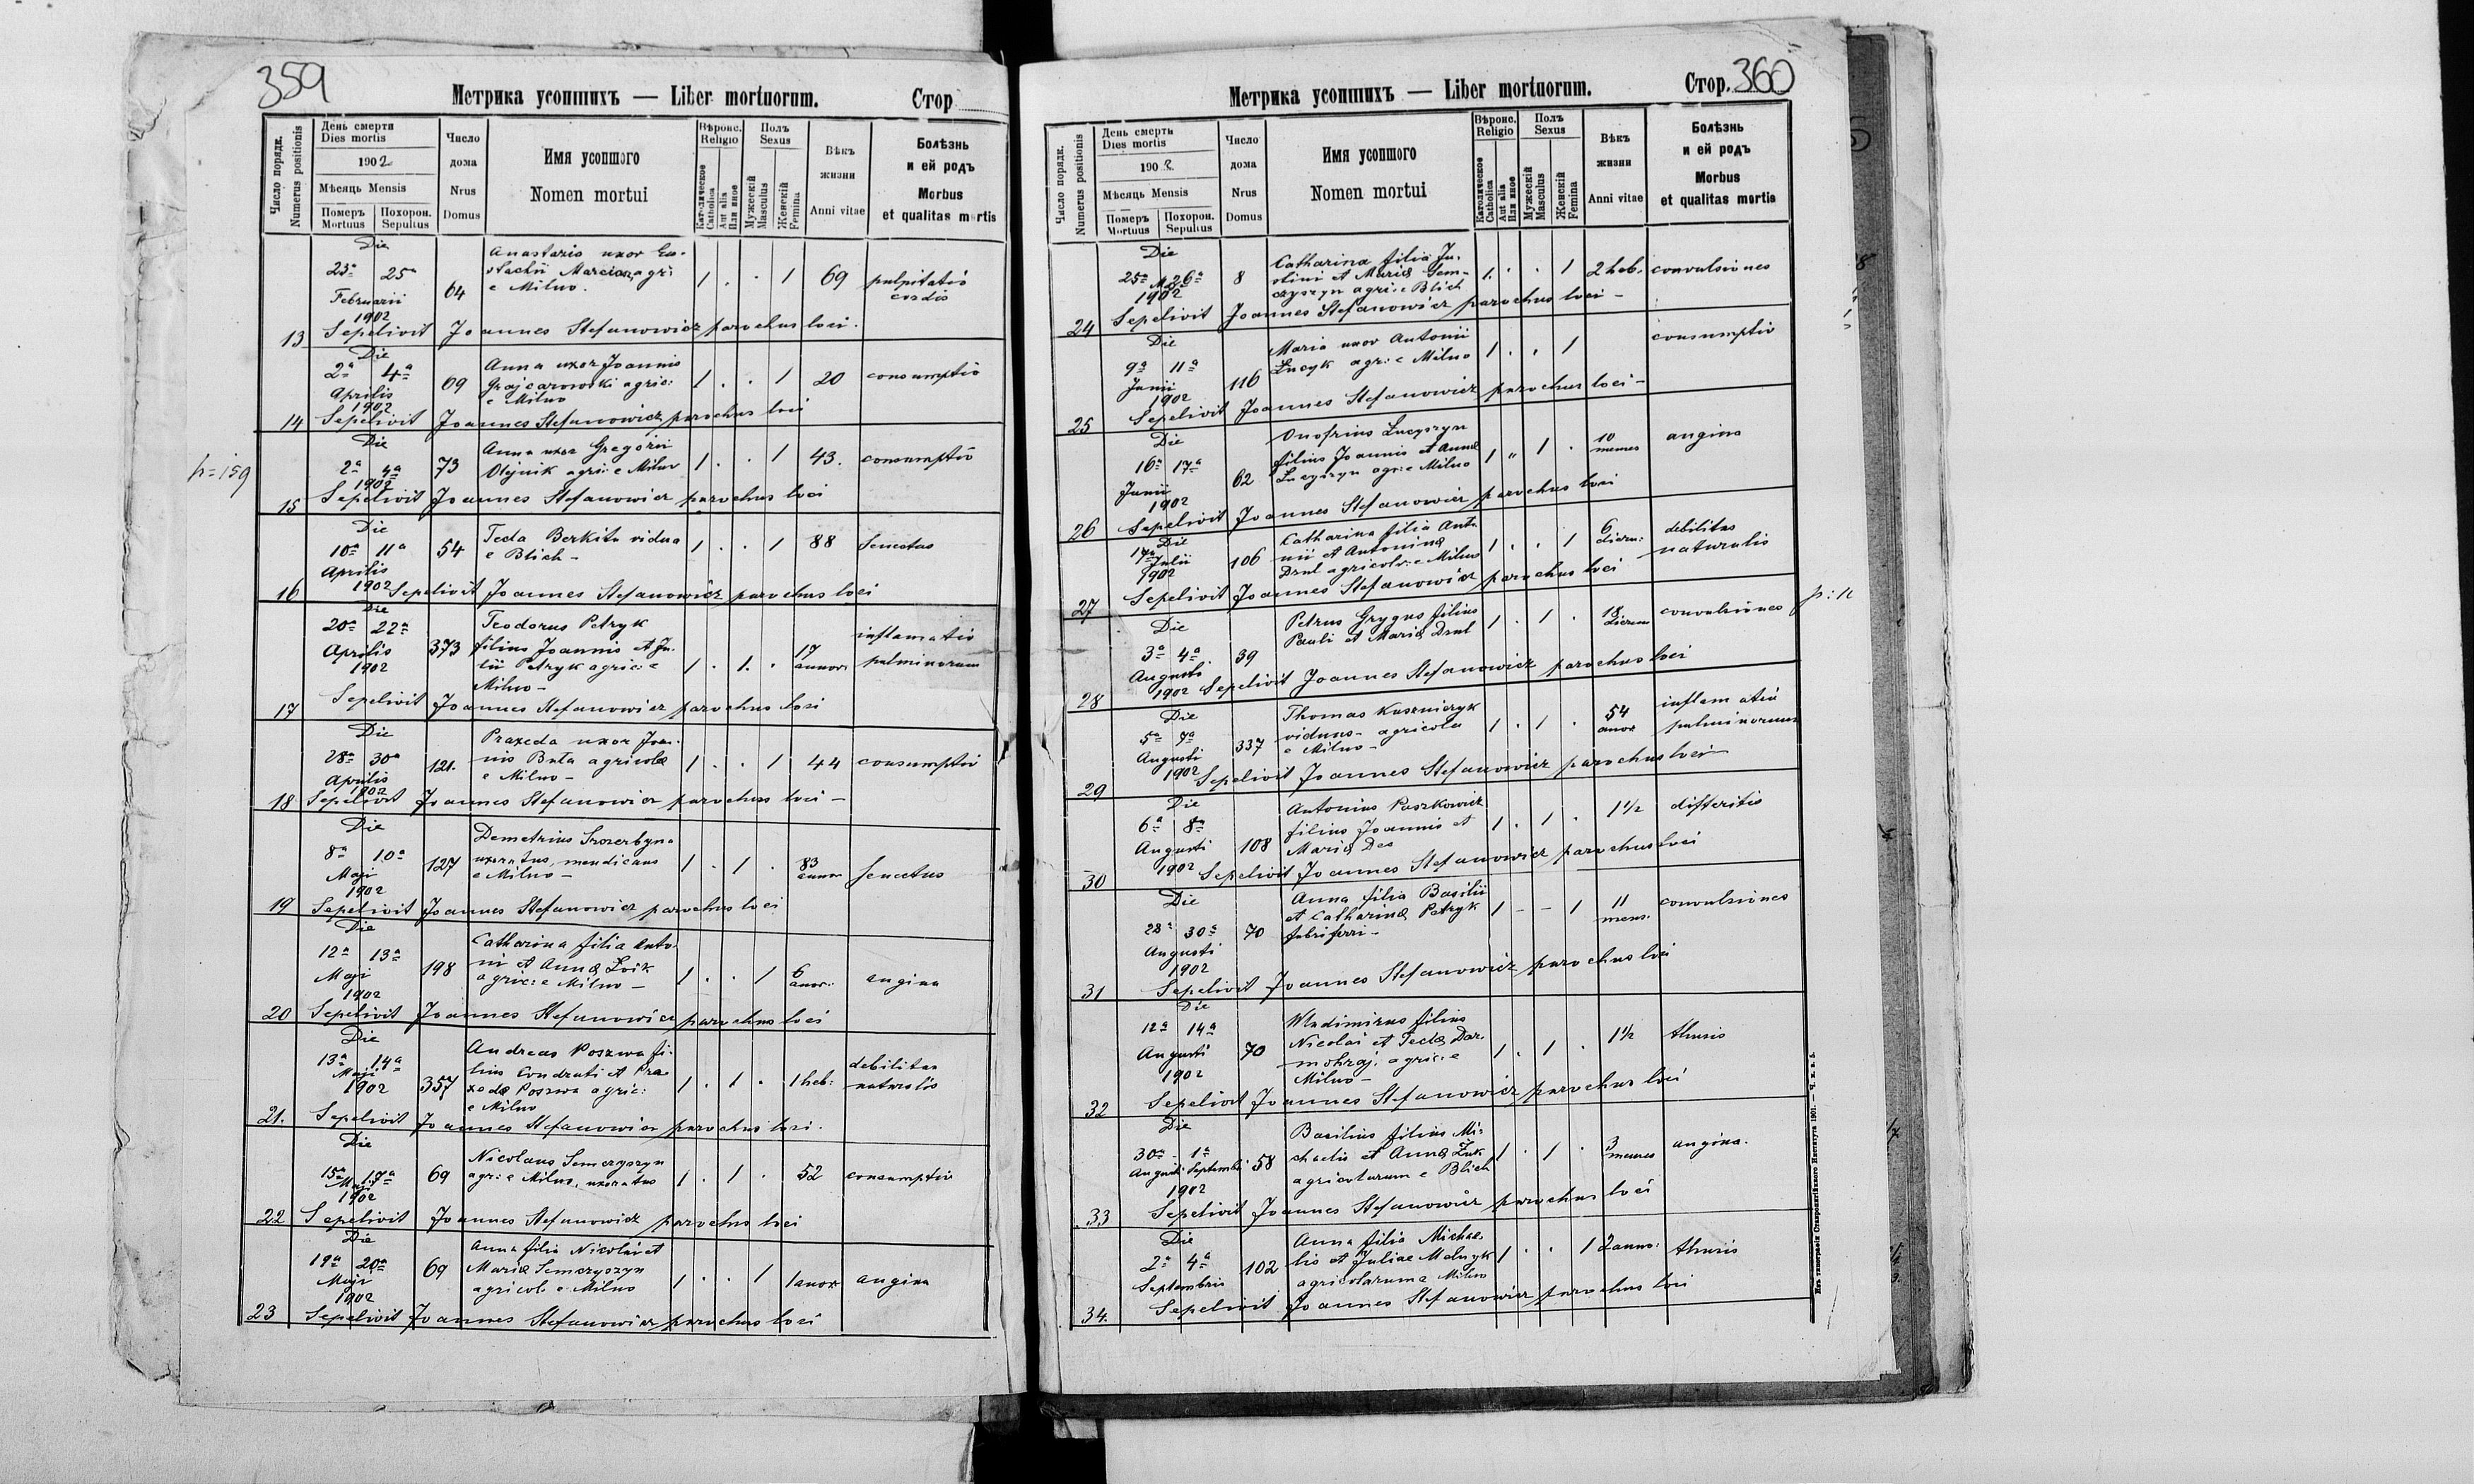 359
Метрика усопшихъ — Liber mortuorum.
Стор
Число порядк.
Numerus positionis
День смерти
Dies mortis
1902
Мѣсяць Mensis
Померъ
Mortuus
Похорон.
Sepultus
Число
дома
Nrus
Domus
Имя усопшого
Nomen mortui
Вѣроис.
Religio
Католическое
Catholica
Aut alia
Или иное
Полъ
Sexus
Мужескій
Masculus
Женскій
Femina
Вѣкъ
жизни
Anni vitae
Болѣзнь
и ей родъ
Morbus
et qualitas mortis
Die
23a 25a
Februarii
1902
64
Anastasia uxor Eu-
stachii agri:
e Milno.
1 . . 1 69
pulpitatio
cordis
13 Sepelivit Joannes Stefanowicz parochus loci.
Die
2a 4a
Aprilis
1902
69
Anna uxor Joannis
Grajcarowski agric:
e Milno
1 . . 1 20
consumptio
14 Sepelivit Joannes Stefanowicz parochus loci
Die
2a 4a
1902
73
Anna uxor Gregorii
Olejnik agri: e Milno
1 . . 1 43.
consumptio
15 Sepelivit Joannes Stefanowicz parochus loci
Die
10a 11a
Aprilis
1902
54
Tecla Berkita vidua
e Blich -
1 . . 1 88
Senectus
16 Sepelivit Joannes Stefanowicz parochus loci
Die
20a 22a
Aprilis
1902
373
Teodorus Petryk
filius Joannis et Ju-
lii Petryk agric: e
Milno -
1 . 1. . 17
annor:
inflamatio
pulminorum
17 Sepelivit Joannes Stefanowicz parochus loci
Die
28a 30a
Aprilis
1902
121.
Praxeda uxor Joan-
nis Buta agricolæ
e Milno -
1 . . 1 44
consumptio
18 Sepelivit Joannes Stefanowicz parochus loci -
Die
8a 10a
Maji
1902
127
Demetrius
uxoratus, mendicans
e Milno -
1 . 1 . 83
Senectus
19 Sepelivit Joannes Stefanowicz parochus loci
Die
12a 13a
Maji
1902
198
Catharina filia Anto-
nii et Annæ Łoik
agric: e Milno -
1 . . 1 6
annor:
angina
20 Sepelivit Joannes Stefanowicz parochus loci
Die
13a 14a
Maji
1902
357
Andreas Poszwa fi-
lius Condrati et Pra-
xedæ Poszwa agric:
e Milno
1 . 1 . 1 heb:
debilitas
naturalis
21. Sepelivit Joannes Stefanowicz parochus loci.
Die
15a 17a
Maji
1902
69
Nicolaus Semczyszyn
agr: e Milno, uxoratus
1 . 1 . 52
consumptio
22 Sepelivit Joannes Stefanowicz parochus loci
Die
19a 20a
Maji
1902
69
Anna filia Nicolai et
Mariæ Semczyszyn
agricol e Milno
1 . . 1 1 anor
angina
23 Sepelivit Joannes Stefanowicz parochus loci
360
Метрика усопшихъ — Liber mortuorum.
Стор.
Число порядк.
Numerus positionis
День смерть
Dies mortis
1902.
Мѣсяць Mensis
Померъ
Mortuus
Похорон.
Sepultus
Число
дома
Nrus
Domus
Имя усопшого
Nomen mortui
Вѣроис.
Religio
Католическое
Catholica
Aut alia
Или иное
Полъ
Sexus
Мужескій
Masculus
Женскій
Femina
Вѣкъ
жизни
Anni vitae
Болѣзнь
и ей родъ
Morbus
et qualitas mortis
Die
25a 26a
1902
8
Catharina filia Ju-
stini et Mariæ Sem-
czyszyn agri: e Blich
1. . . 1 2 heb.
convulsiones
24 Sepelivit Joannes Stefanowicz parochus loci -
Die
9a 11a
Junii
1902
116
Maria uxor Antonii
Łucyk agr: e Milno
1 . . 1
consumptio
25 Sepelivit Joannes Stefanowicz parochus loci -
Die
16a 17a
Junii
1902
62
Onofrius Łucyszyn
filius Joannis et Annæ
Łucyszyn agr: e Milno
1 " 1 . 10
menses
angina
26 Sepelivit Joannes Stefanowicz parochus loci
Die
Julii
1902
106
Catharina filia Anto-
nii et Antoninæ
Drul agricolæ: e Milno
1 . . 1 6
dieru:
debilitas
naturalis
27 Sepelivit Joannes Stefanowicz parochus loci
Die
3a 4a
Augusti
1902
39
Petrus Grygus filius
Pauli et Mariæ Drul
1 . 1 . 18
dierum
convulsiones
28 Sepelivit Joannes Stefanowicz parochus loci
Die
5a 7a
Augusti
1902
337
Thomas Kuszniryk
viduus - agricola
e Milno -
1 . 1 . 54
anor
inflamatio
pulminorum
29 Sepelivit Joannes Stefanowicz parochus loci -
Die
6a 8a
Augusti
1902
108
Antonius Paszkowicz
filius Joannis et
Mariæ Des
1 . 1 . 1 1/2
difteritis
30 Sepelivit Joannes Stefanowicz parochus loci
Die
28a 30a
Augusti
1902
70
Anna filia Basilii
et Catharinæ Petryk
fabri ferri -
1 - - 1 11
mens.
convulsiones
31 Sepelivit Joannes Stefanowicz parochus loci
Die
12a 14a
Augusti
1902
70
Wladimirus filius
Nicolai et Teclæ Dar-
mohraj, agric: e
Milno -
1 . 1 . 1 1/2
thusis
32 Sepelivit Joannes Stefanowicz parochus loci
Die
30a - 1a
Augusti Septembri
1902
58
Basilius filius Mi-
chaelis et Annæ Żuk
agricolarum e Blich
1 . 1 . 3
menses
angina.
33 Sepelivit Joannes Stefanowicz parochus loci
Die
2a 4a
Septembris
102
Anna filia Michae-
lis et Juliae Melnyk
agricolarum e Milno
1 . . 1 2 anno:
thusis
34. Sepelivit Joannes Stefanowicz parochus loci
Изъ типографіи Ставропигійского Института 1901.